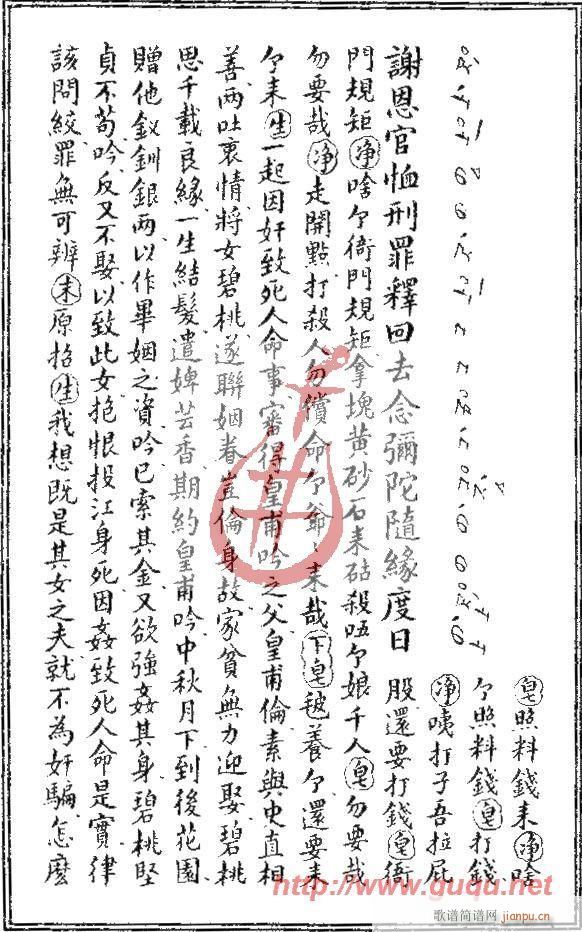 謝恩官恤刑罪釋回去念彌陀隨緣度日
皂照料錢耒净啥
个照料錢皂打錢
净咦打子吾拉屁
股還要打錢皂衙
門規矩净啥个衙門規矩拿塊黄砂石耒砧殺唔个娘千人皂勿要哉
勿要哉净走開點打殺人勿償命个爺〻耒哉下皂秘養个還要耒
个耒生一起因奸致死人命事審得皇甫吟之父皇甫倫素與史直相
善両吐衷情將女碧桃遂聯姻眷豈倫身故家貧無力迎娶碧桃
思千載良緣一生結髮遣婢芸香期約皇甫吟中秋月下到後花園
贈他釵釧銀両以作畢姻之資吟已索其金又欲強姦其身碧桃堅
貞不苟吟反又不娶以致此女抱恨投江身死因姦致死人命是實律
該問絞罪無可辨末原招生我想既是其女之夫就不為奸騙怎麽
http://www.guqu.net
歌谱简谱网
jianpu.cn